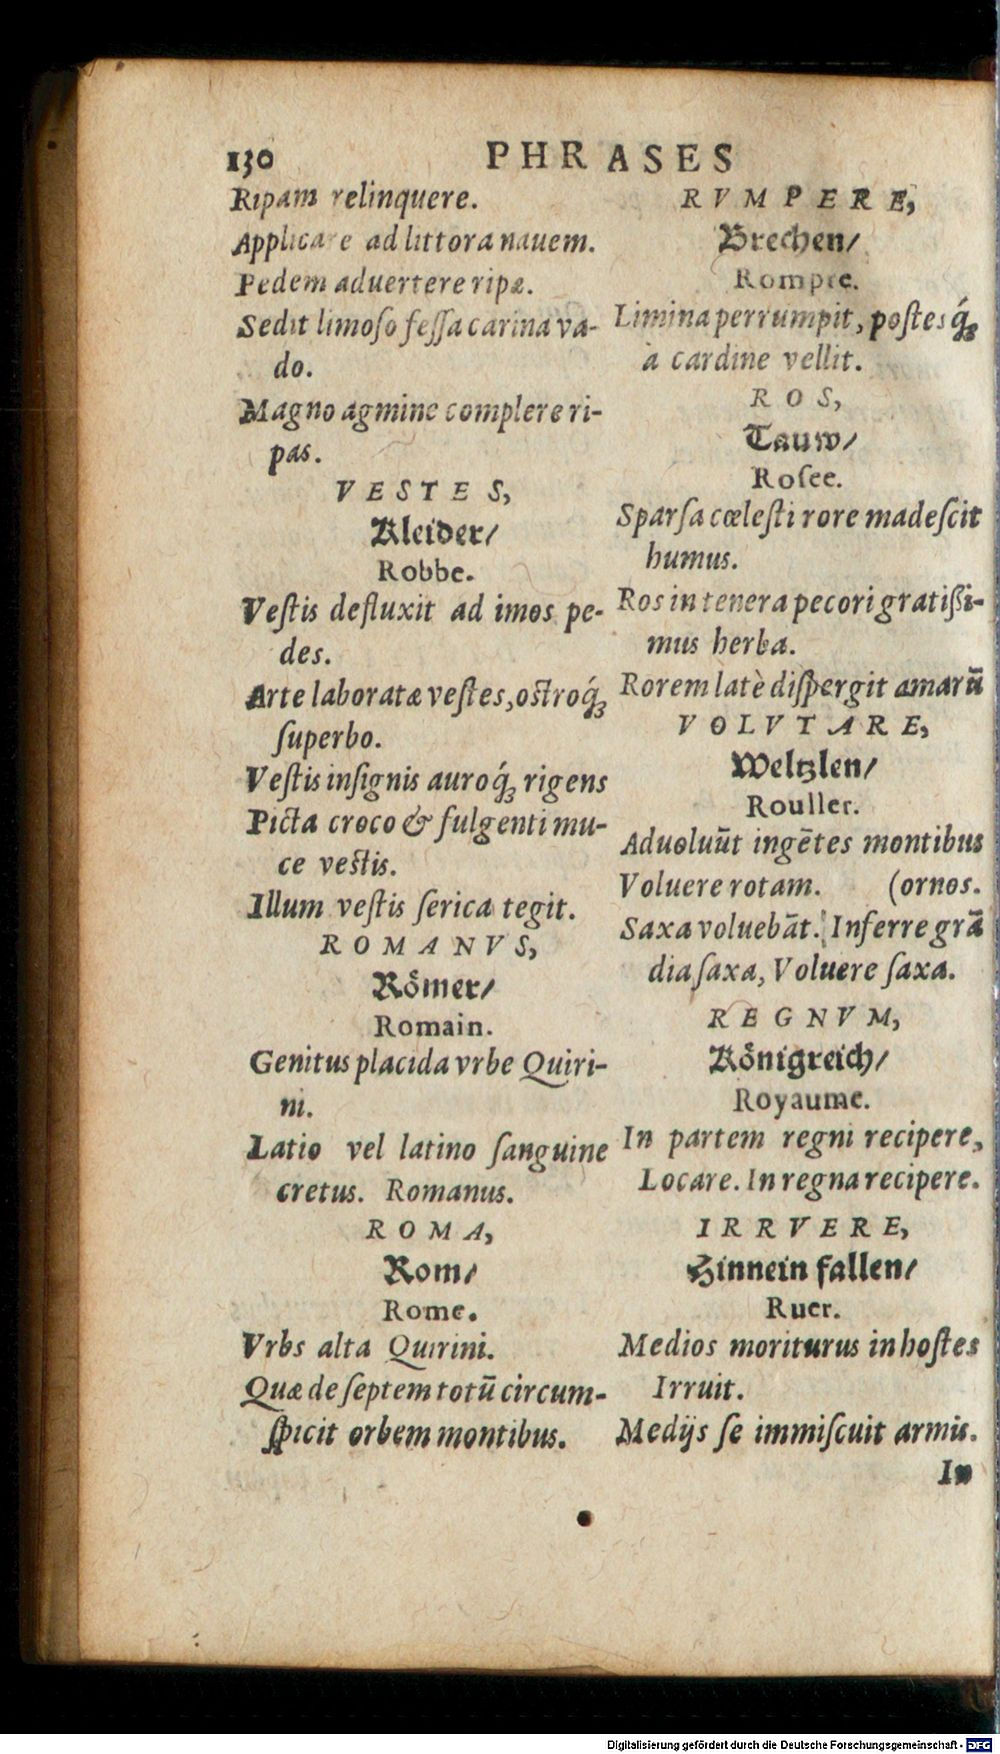 130 PHRASES
Ripam relinquere.
Applicare ad littora nauem.
Pedem aduertere ripæ.
Sedit limoſo feſſa carina va-
do.
Magno agmine complere ri-
pas.
VESTES,
Kleider/
Robbe.
Veſtis defluxit ad imos pe-
des.
Arte laboratæ veſtes, oſtroq́ꝫ
ſuperbo.
Veſtis inſignis auroq́ꝫ rigens
Picta croco & fulgenti mu-
ce veſtis.
Illum veſtis ſerica tegit.
ROMANVS,
Roͤmer/
Romain.
Genitus placida vrbe Quiri-
ni.
Latio vel latino ſanguine
cretus. Romanus.
ROMA,
Rom/
Rome.
Vrbs alta Quirini.
Quæ de ſeptem totū circum-
ſpicit orbem montibus.
RVMPERE,
Brechen/
Rompre.
Limina perrumpit, poſtesq́ꝫ
à cardine vellit.
ROS,
Tauw/
Roſee.
Sparſa cœleſti rore madeſcit
humus.
Ros in tenera pecori gratiſsi-
mus herba.
Rorem latè diſpergit amarū
VOLVTARE,
Weltzlen/
Rouller.
Aduoluūt ingētes montibus
Voluere rotam. (ornos.
Saxa voluebāt. Inferre grā
dia ſaxa, Voluere ſaxa.
REGNVM,
Koͤnigreich/
Royaume.
In partem regni recipere,
Locare. In regna recipere.
IRRVERE,
Hinnein fallen/
Ruer.
Medios moriturus in hoſtes
Irruit.
Medijs ſe immiſcuit armis.
In
Digitalisierung gefördert durch die Deutsche Forschungsgemeinschaft - DFG